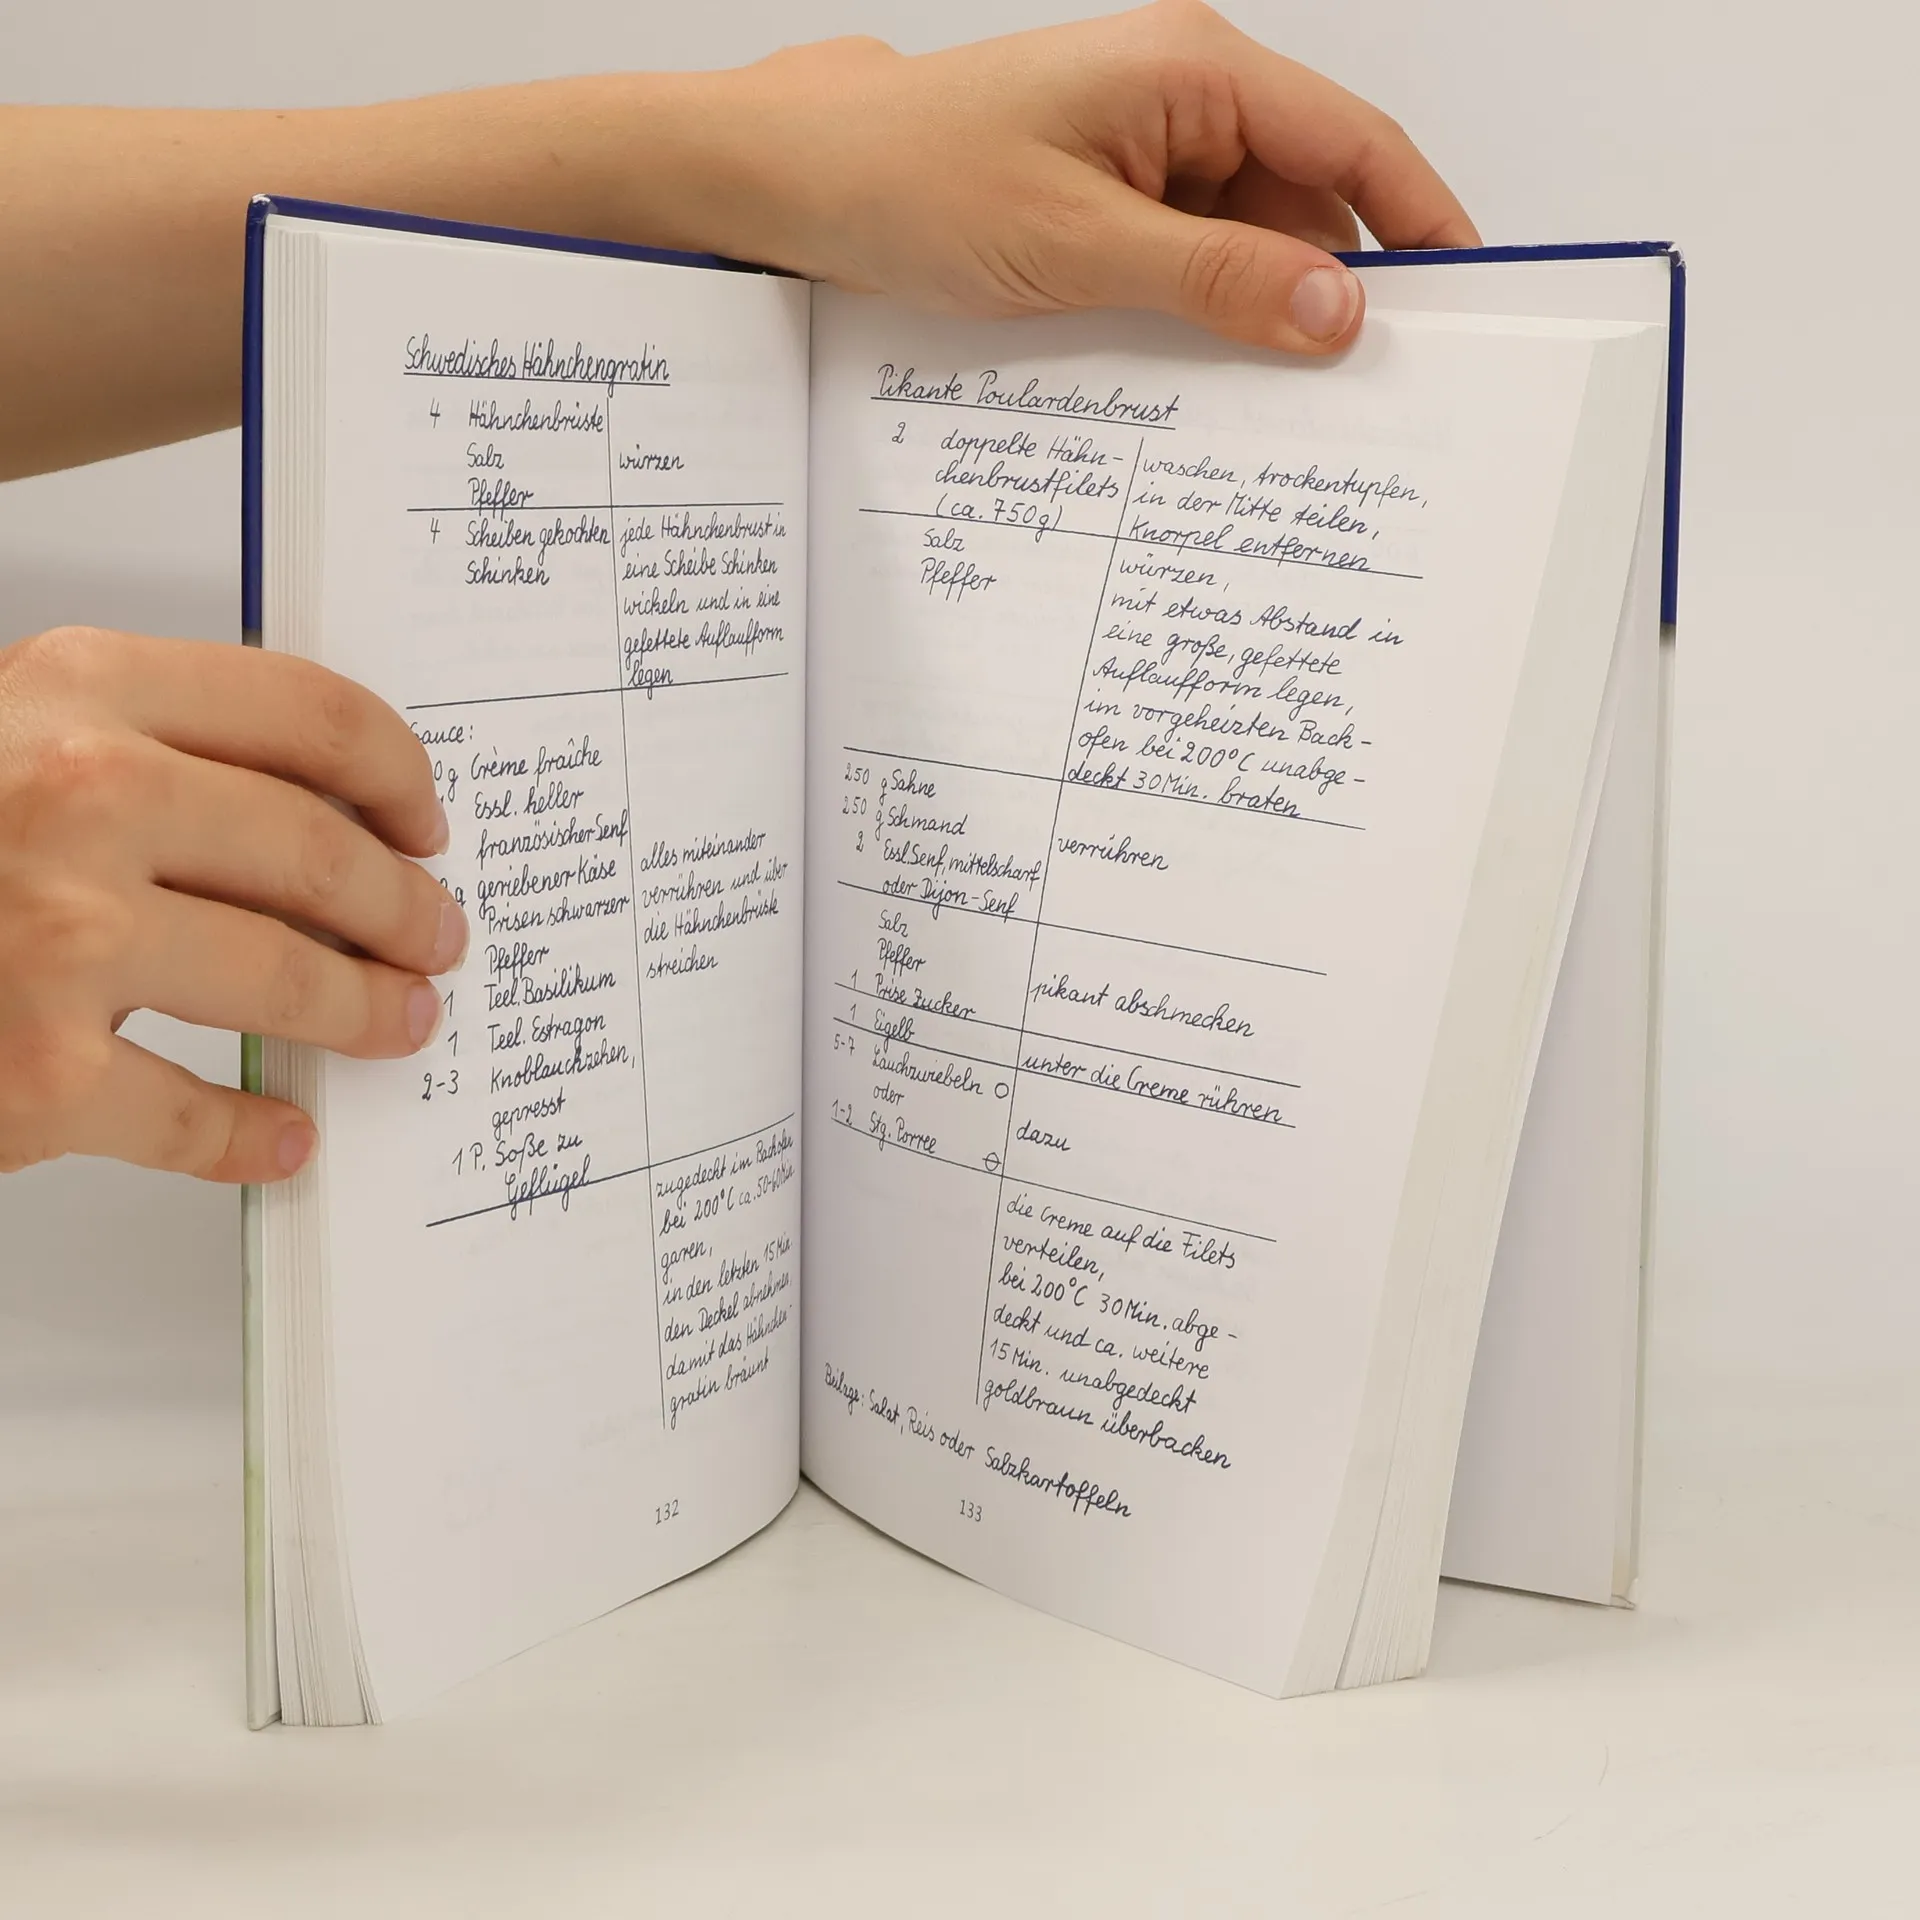 Schwedisches Hähnchengratin
4 Hähnchenbrüste
Salz würzen
Pfeffer
4 Scheiben gekochten jede Hähnchenbrust in
Schinken eine Scheibe Schinken
wickeln und in eine
gefettete Auflaufform
legen
Sauce:
g Crème fraîche
Essl. heller
französischer Senf
g geriebener Käse
Prisen schwarzer
Pfeffer
alles miteinander
verrühren und über
die Hähnchenbrüste
streichen
1 Teel. Basilikum
1 Teel. Estragon
2-3 Knoblauchzehen,
gepresst
1 P. Soße zu
Geflügel
zugedeckt im Backofen
bei 200°C ca. 50-60 Min.
garen,
in den letzten 15 Min.
den Deckel abnehmen,
damit das Hähnchen-
gratin bräunt
132
Pikante Poulardenbrust
2 doppelte Hähn-
chenbrustfilets
(ca. 750g)
waschen, trockentupfen,
in der Mitte teilen,
Knorpel entfernen
Salz
Pfeffer
würzen,
mit etwas Abstand in
eine große, gefettete
Auflaufform legen,
im vorgeheizten Back-
ofen bei 200°C unabge-
deckt 30 Min. braten
250 g Sahne
250 g Schmand
2 Essl. Senf, mittelscharf
oder Dijon-Senf
verrühren
Salz
Pfeffer
1 Prise Zucker
pikant abschmecken
1 Eigelb
unter die Creme rühren
5-7 Lauchzwiebeln
oder
1-2 Stg. Porree
dazu
die Creme auf die Filets
verteilen,
bei 200°C 30 Min. abge-
deckt und ca. weitere
15 Min. unabgedeckt
goldbraun überbacken
Beilage: Salat, Reis oder Salzkartoffeln
133